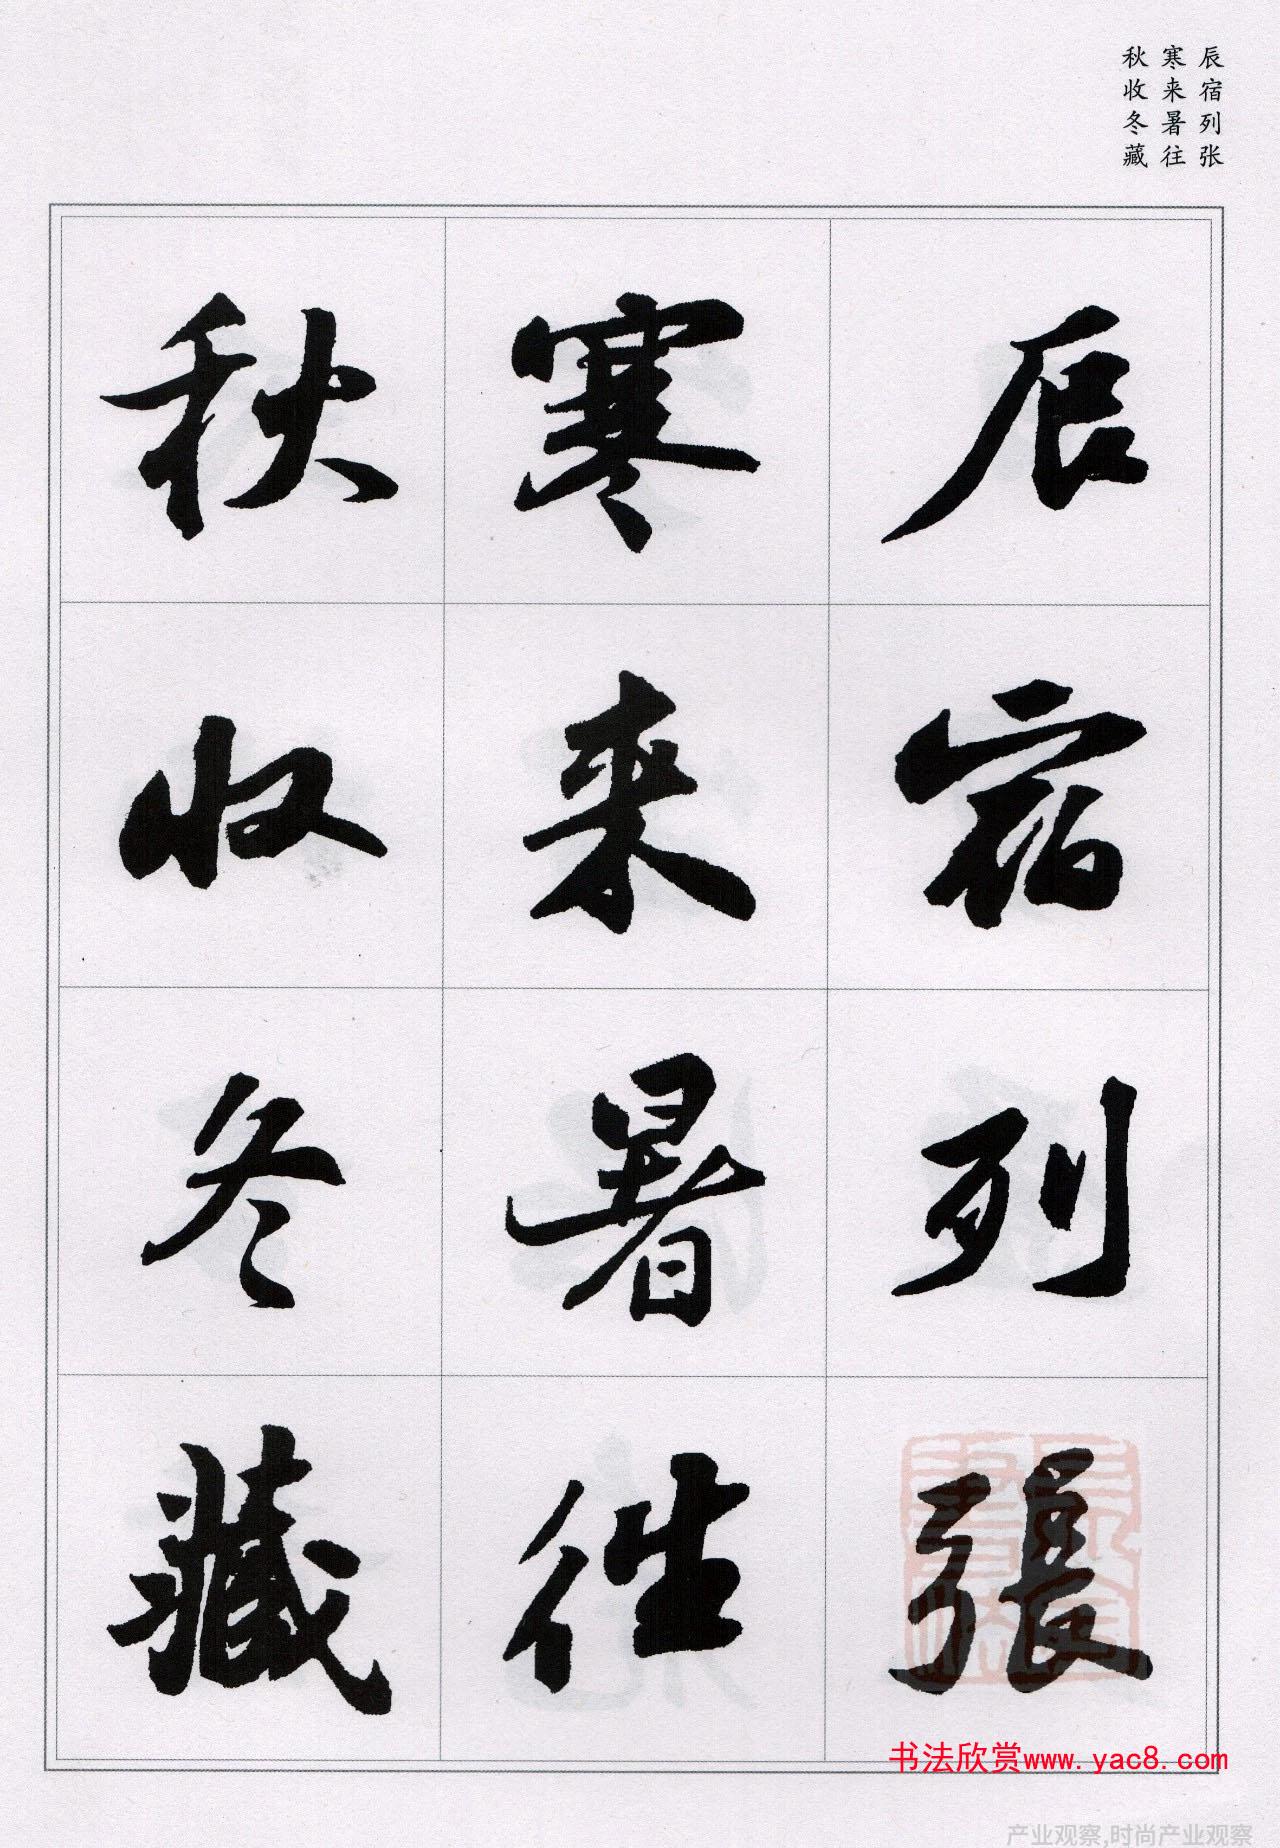 辰宿列张
寒来暑往
秋收冬藏
辰宿列張
寒来暑往
秋收冬藏
书法欣赏www.yac8.com
产业观察,时尚产业观察